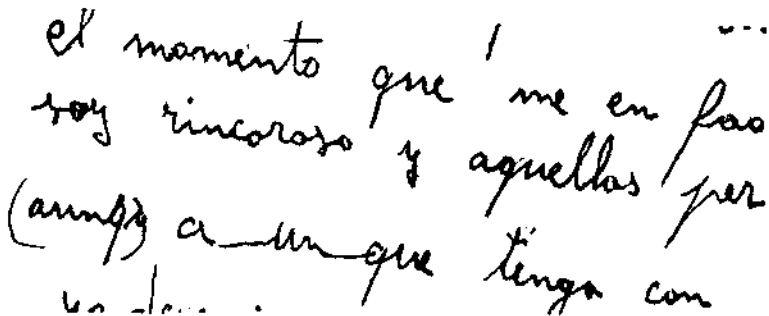 el momento que me en fao
soy rincoroso y aquellas per
(aunq) a un que tenga con